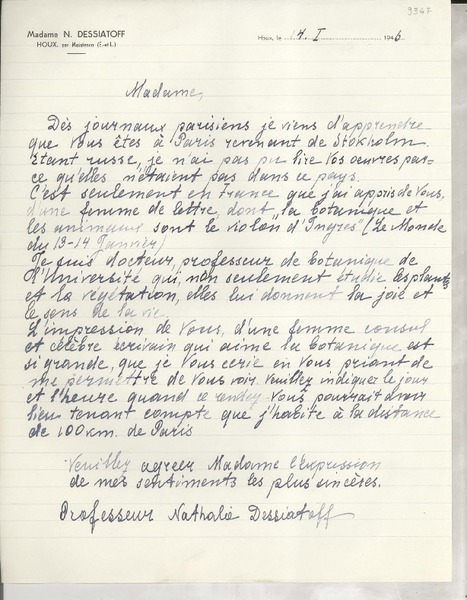 9367
Madame N. DESSIATOFF
HOUX, par Maintenon (E.-et-L.)
Houx, le 14. I 1946
Madame,
Dès journaux parisiens je viens d'apprendre
que Vous êtes à Paris revenant de Stokholm.
Etant russe, je n'ai pas pu lire Vos oeuvres par-
ce qu'elles n'étaient pas dans ce pays.
C'est seulement en France que j'ai appris de Vous,
d'une femme de lettre, dont "la botanique et
les animaux sont le violon d'Ingres" (Le Monde
du 13-14 Janvier)
Je suis docteur, professeur de botanique de
l'Université qui, non seulement étudie les plantes
et la végétation, elles lui donnent la joie et
le sens de la vie.
L'impression de Vous, d'une femme consul
et célèbre écrivain qui aime la botanique est
si grande, que je Vous ecrie en Vous priant de
me permettre de Vous voir. Veuillez indiquer le jour
et l'heure quand ce rendez Vous pourrait avoir
lieu tenant compte que j'habite à la distance
de 100 km. de Paris
Veuillez agreer Madame l'expression
de mes sentiments les plus sincères.
Professeur Nathalie Dessiatoff